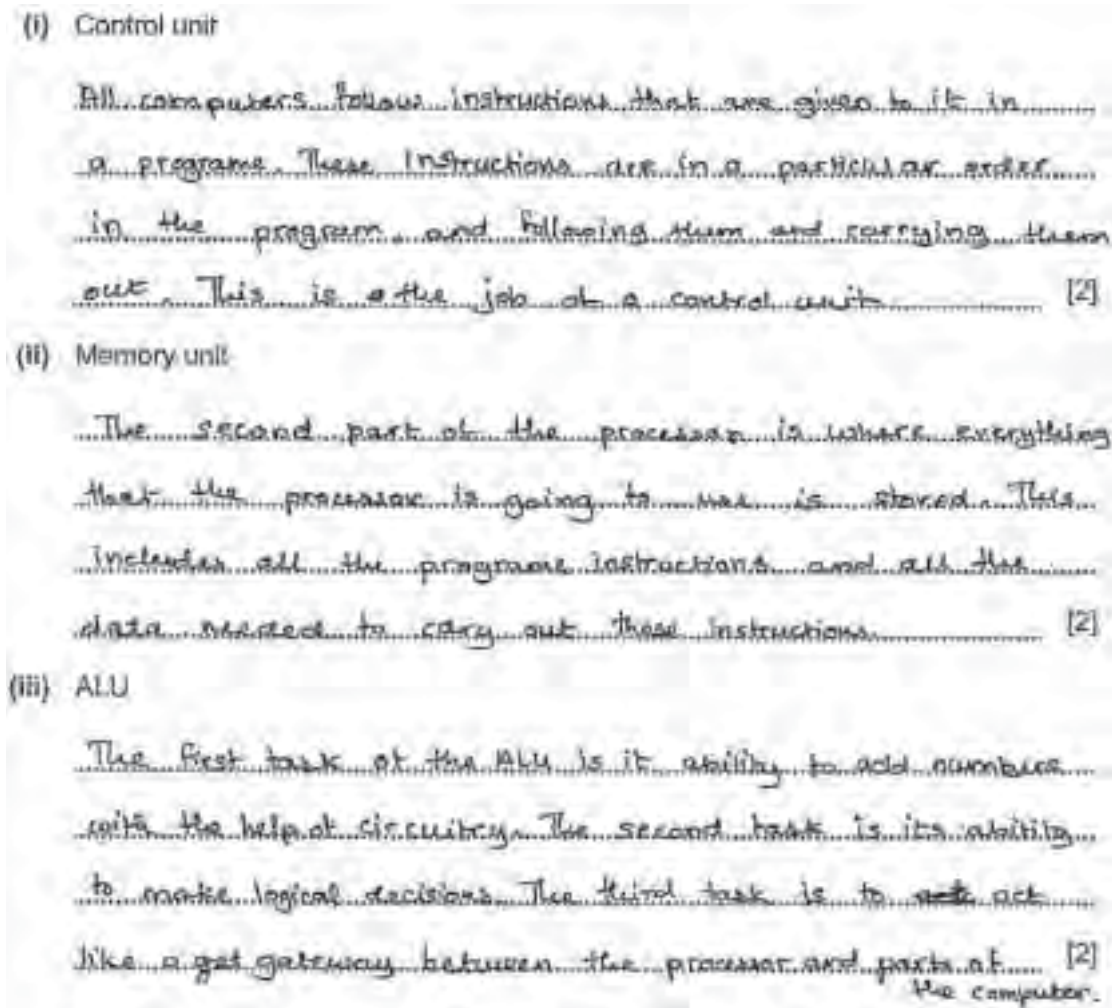 (i) Control unit
All computers follows instructions that are given to it in
a programe. These Instructions are in a particular order
in the program, and following them and carrying them
out. This is a the job of a control unit [2]
(ii) Memory unit
The second part of the processor is where everything
that the processor is going to use is stored. This
includes all the programe instructions and all the
data needed to cary out these instructions [2]
(iii) ALU
The first task of the ALU is it ability to add numbers
with the help of circuitry. The second task is its ability
to make logical decisions. The third task is to act act
like a get gateway between the processor and parts of [2]
the computer.